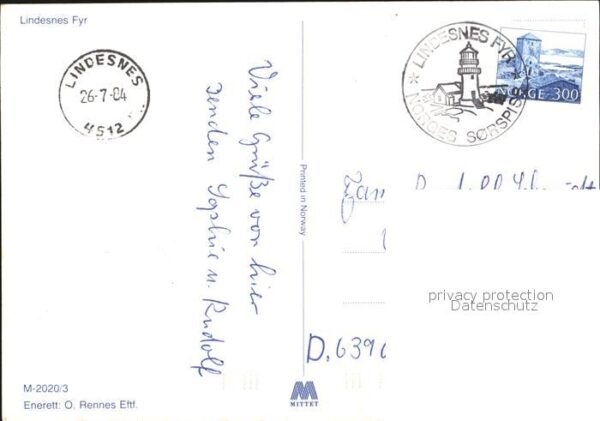 Lindesnes Fyr
LINDESNES
26-7-84
4512
Viele Grüße von hier
senden Sophie u. Rudolf
Printed in Norway
LINDESNES FYR
NORGES SØRSPISS
NORGE 300
Fam.
D. 6396
privacy protection
Datenschutz
M-2020/3
Enerett: O. Rennes Eftf.
MITTET